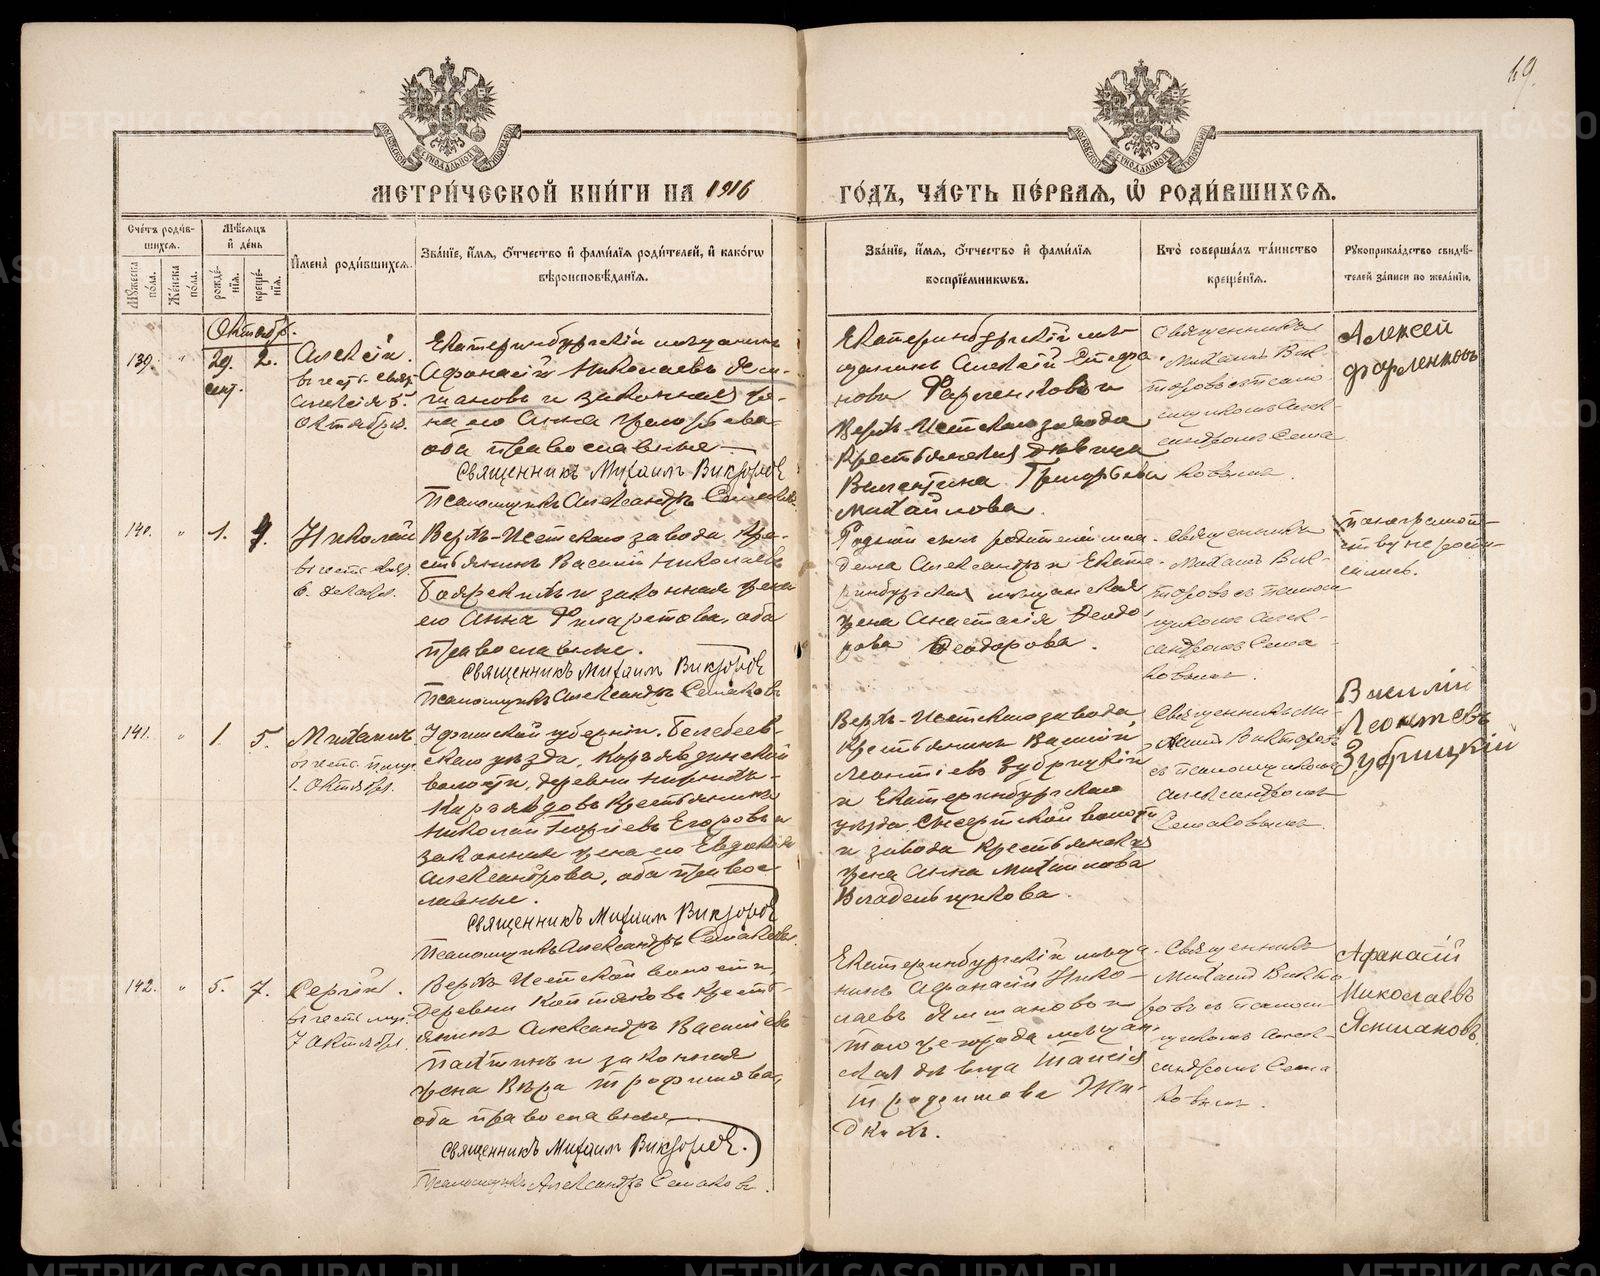 69.
МЕТРИЧЕСКОЙ КНИГИ НА 1916
ГОДЪ, ЧАСТЬ ПЕРВАЯ, Ѡ РОДИВШИХСЯ.
Счетъ родившихся.
Мужеска пола.
Женска пола.
Мѣсяцъ и день
рожденія.
крещенія.
Имена родившихся.
Званіе, имя, отчество и фамилія родителей, и какогѡ
вѣроисповѣданія.
Званіе, имя, отчество и фамилія
воспріемникѡвъ.
Кто совершалъ таинство
крещенія.
Рукоприкладство свидѣ-
телей записи по желанію.
Октябрь.
139.
29.
сент.
2.
Алексій.
въ честь свят.
Алексія 5.
Октября.
Екатеринбургскій мѣщанинъ
Афанасій Николаевъ
и законная же-
на его Анна Григорьева
оба православные
Священникъ Михаилъ Викторовъ
Псаломщикъ Александръ Семаковъ
Екатеринбургскій мѣ-
щанинъ Алексій
Фарлентовъ и
Верхъ-Исетскаго завода
крестьянская дѣвица
Валентина Григорьева
Михайлова.
Священникъ
Михаилъ Вик-
торовъ съ псало
мщикомъ Алек-
сандромъ Сема
ковымъ.
Алексей
Фарлентовъ
140.
1.
4.
Николай
въ честь свят.
6. декабря.
Верхъ-Исетскаго завода кре-
стьянинъ Василій Николаевъ
Боярскихъ и законная жена
его Анна Филаретова, оба
православные.
Священникъ Михаилъ Викторовъ
Псаломщикъ Александръ Семаковъ
Родной сынъ родителей мла-
денца Александръ и Екате-
ринбургская мѣщанская
жена Анастасія Ѳеодо
рова Ѳеодорова.
Священникъ
Михаилъ Вик-
торовъ съ псалом
щикомъ Алек-
сандромъ Сема-
ковымъ.
по неграмот-
ству не роспи-
сались.
141.
1.
5.
Михаилъ
1. Октября.
Уфимской губерніи, Белебеев-
скаго уѣзда,
волости, деревни
крестьянинъ
Николай Георгіевъ Егоровъ и
законная жена его Евдокія
Александрова, оба право-
славные.
Священникъ Михаилъ Викторовъ
Псаломщикъ Александръ Семаковъ.
Верхъ-Исетскаго завода
крестьянинъ Василій
Леонтіевъ Зубрицкій
и Екатеринбургскаго
уѣзда, Сысертской волости
и завода крестьянская
жена Анна Михайлова
Владельщикова.
Священникъ Ми-
хаилъ Викторовъ
съ псаломщикомъ
Александромъ
Семаковымъ.
Василій
Леонтевъ
Зубрицкій
142.
5.
7.
Сергій.
въ честь муч.
7 Октября.
Верхъ-Исетской волости,
деревни Коптяковъ кресть-
янинъ Александръ Васильевъ
и законная
жена Вѣра Трофимова,
оба православные
Священникъ Михаилъ Викторовъ.
Псаломщикъ Александръ Семаковъ.
Екатеринбургскій мѣща-
нинъ Афанасій Нико-
лаевъ Яшмановъ и
того же города мѣщан-
ская дѣвица Таисія
Трофимова Жи-
дкихъ.
Священникъ
Михаилъ Викто
ровъ съ псалом
щикомъ Алек-
сандромъ Сема
ковымъ.
Афанасій
Николаевъ
Яшмановъ.
METRIKI.GASO-URAL.RU